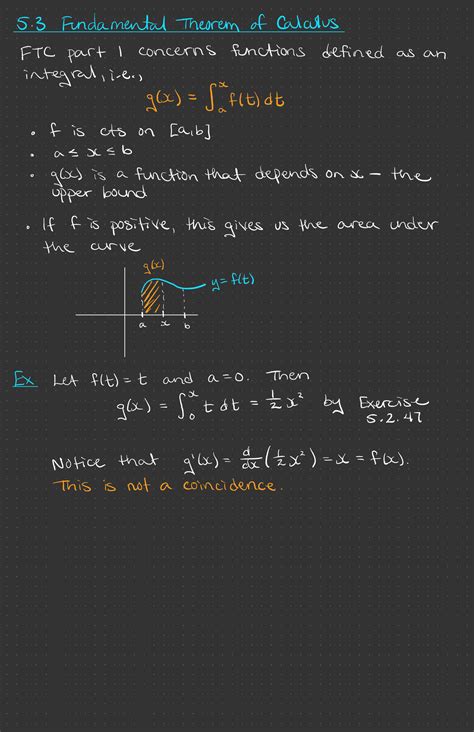 5.3 Fundamental Theorem of Calculus
FTC part 1 concerns functions defined as an
integral, i.e.,
g(x) = ∫ₐˣ f(t) dt
• f is cts on [a,b]
• a ≤ x ≤ b
• g(x) is a function that depends on x – the
upper bound
• If f is positive, this gives us the area under
the curve
g(x)
y = f(t)
a x b
Ex Let f(t) = t and a = 0. Then
g(x) = ∫₀ˣ t dt = ½ x² by Exercise
5.2.47
Notice that g'(x) = d/dx (½ x²) = x = f(x).
This is not a coincidence.